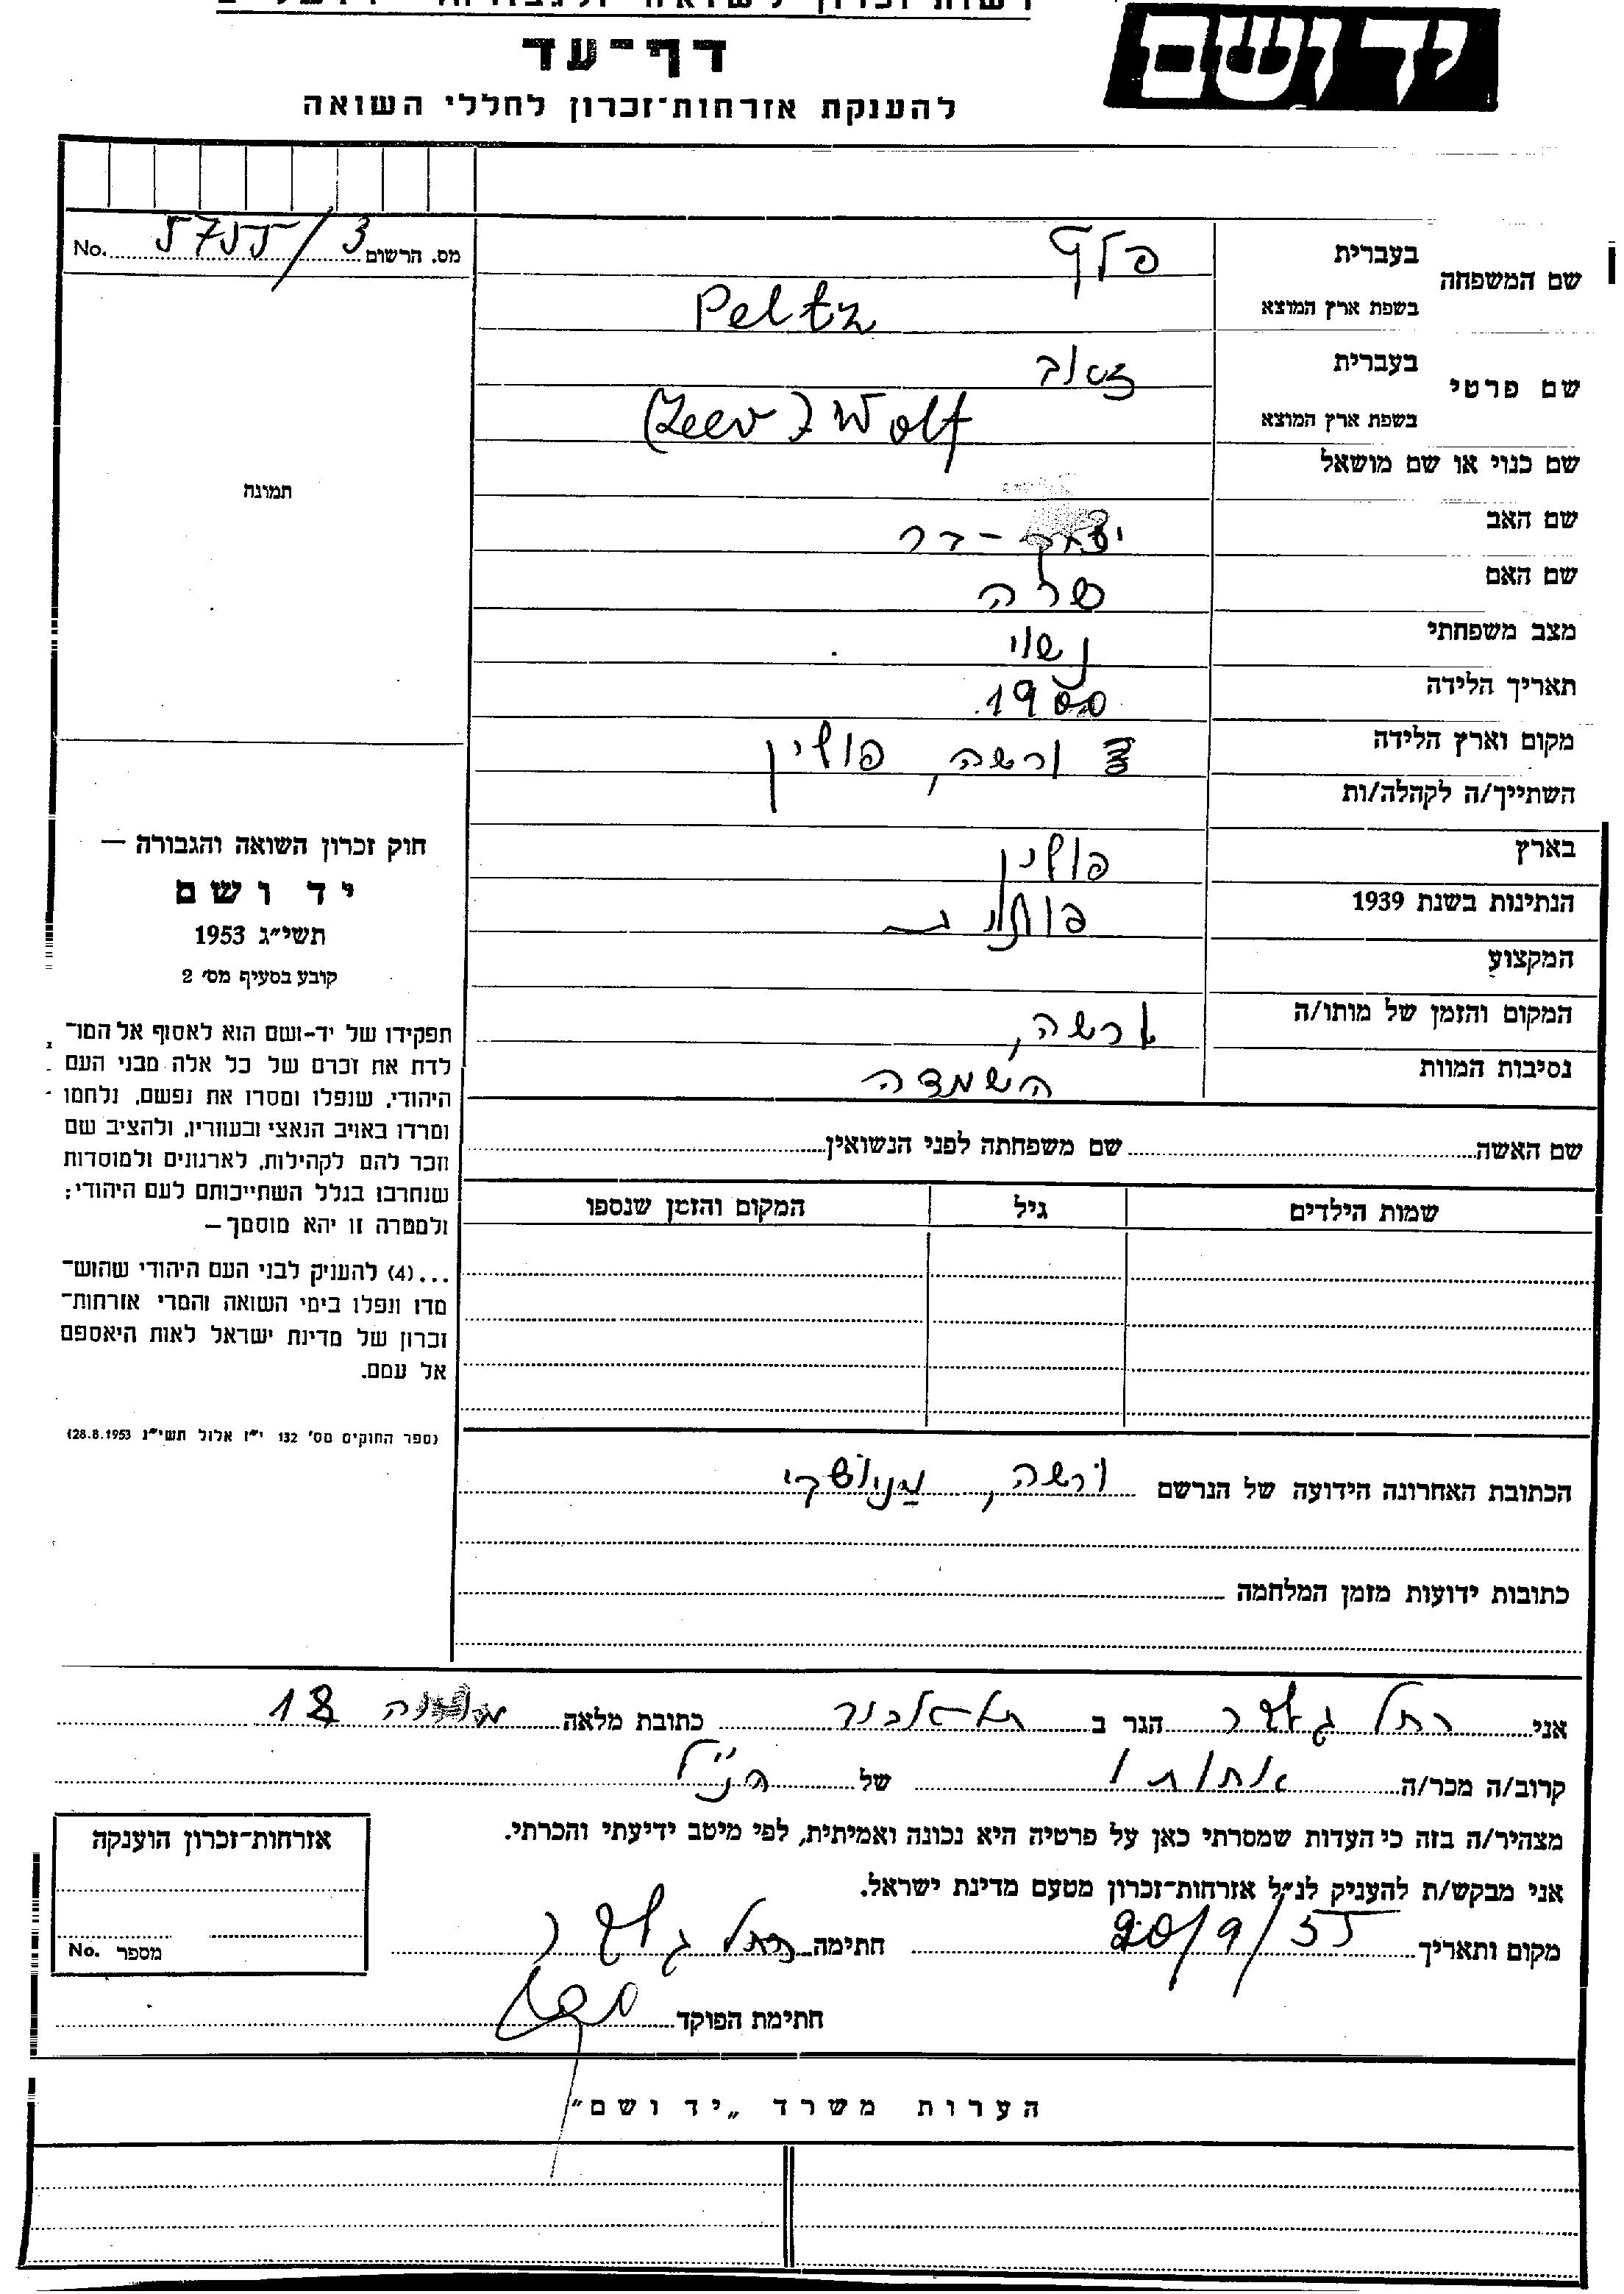 יד ושם
דף-עד
להענקת אזרחות-זכרון לחללי השואה
מס. הרשום 5755/3 No.
שם המשפחה
בעברית פלץ
בשפת ארץ המוצא Peltz
שם פרטי
בעברית זאב
בשפת ארץ המוצא (Zeev) Wolf
שם כנוי או שם מושאל
שם האב יצחק-דר
שם האם שרה
מצב משפחתי נשוי
תאריך הלידה 1900
מקום וארץ הלידה ורשה, פולין
השתייך/ה לקהלה/ות
בארץ פולין
הנתינות בשנת 1939 פולנית
המקצוע
המקום והזמן של מותו/ה ורשה,
נסיבות המוות השמדה
שם האשה שם משפחתה לפני הנשואין
שמות הילדים גיל המקום והזמן שנספו
הכתובת האחרונה הידועה של הנרשם ורשה,
כתובות ידועות מזמן המלחמה
תמונה
חוק זכרון השואה והגבורה —
יד ושם
תשי״ג 1953
קובע בסעיף מס׳ 2
תפקידו של יד-ושם הוא לאסוף אל המו-
לדת את זכרם של כל אלה מבני העם
היהודי, שנפלו ומסרו את נפשם, נלחמו
ומרדו באויב הנאצי ובעוזריו, ולהציב שם
וזכר להם לקהילות, לארגונים ולמוסדות
שנחרבו בגלל השתייכותם לעם היהודי;
ולמטרה זו יהא מוסמך—
...(4) להעניק לבני העם היהודי שהוש-
מדו ונפלו בימי השואה והמרי אזרחות-
זכרון של מדינת ישראל לאות היאספם
אל עמם.
(ספר החוקים מס׳ 132 י״ז אלול תשי״ג 28.8.1953)
אני רחל הגר ב תל אביב כתובת מלאה 18
קרוב/ה מכר/ה אחותו של הנ״ל
מצהיר/ה בזה כי העדות שמסרתי כאן על פרטיה היא נכונה ואמיתית, לפי מיטב ידיעתי והכרתי.
אני מבקש/ת להעניק לנ״ל אזרחות-זכרון מטעם מדינת ישראל.
מקום ותאריך 20/9/55 חתימה רחל
חתימת הפוקד
אזרחות-זכרון הוענקה
מספר No.
הערות משרד „יד ושם״